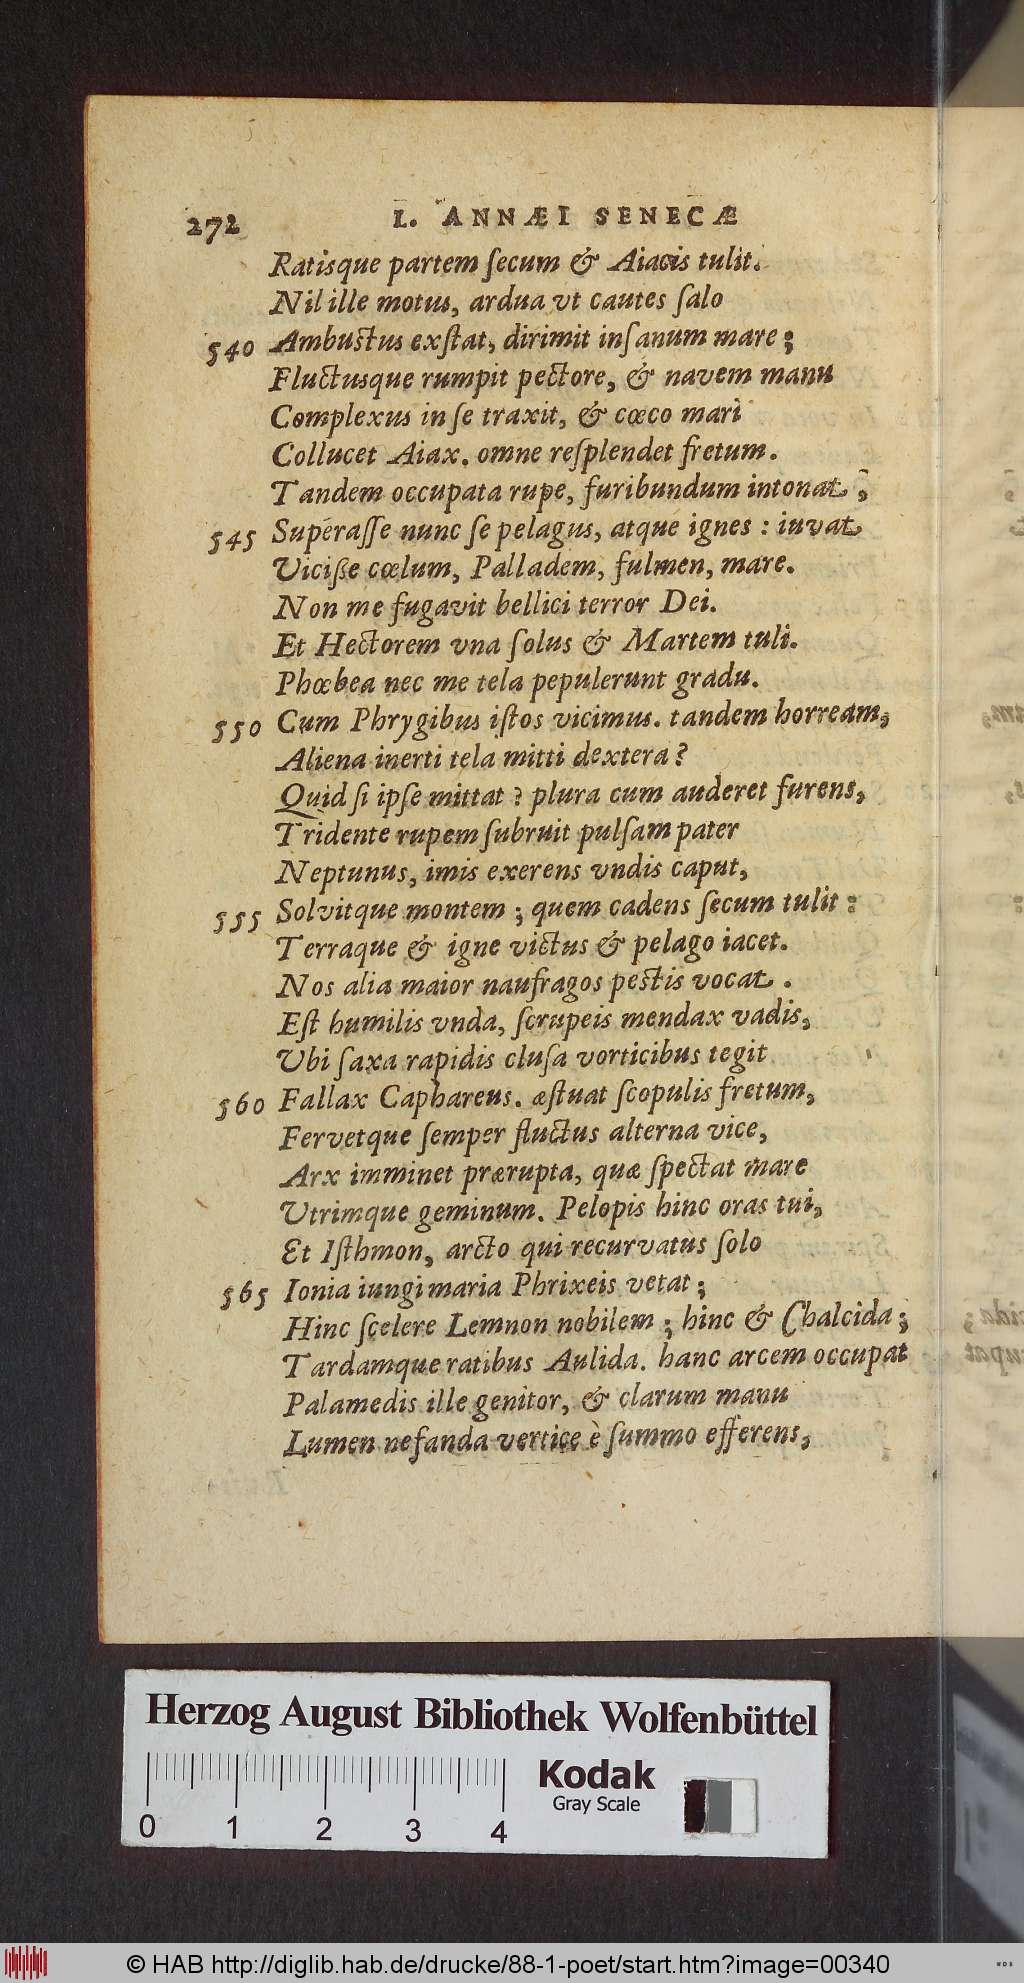 272 L. ANNÆI SENECÆ
Ratisque partem ſecum & Aiacis tulit.
Nil ille motus, ardua vt cautes ſalo
540 Ambustus exſtat, dirimit inſanum mare;
Fluctusque rumpit pectore, & navem manu
Complexus in ſe traxit, & cœco mari
Collucet Aiax. omne reſplendet fretum.
Tandem occupata rupe, furibundum intonat;
545 Superaſſe nunc ſe pelagus, atque ignes : iuvat
Viciße cœlum, Palladem, fulmen, mare.
Non me fugavit bellici terror Dei.
Et Hectorem vna ſolus & Martem tuli.
Phœbea nec me tela pepulerunt gradu.
550 Cum Phrygibus iſtos vicimus. tandem horream,
Aliena inerti tela mitti dextera?
Quid ſi ipſe mittat? plura cum auderet furens,
Tridente rupem ſubruit pulſam pater
Neptunus, imis exerens vndis caput,
555 Solvitque montem; quem cadens ſecum tulit:
Terraque & igne victus & pelago iacet.
Nos alia maior naufragos pestis vocat.
Eſt humilis vnda, ſcrupeis mendax vadis,
Ubi ſaxa rapidis cluſa vorticibus tegit
560 Fallax Caphareus. æſtuat ſcopulis fretum,
Fervetque ſemper fluctus alterna vice,
Arx imminet prærupta, quæ ſpectat mare
Utrimque geminum. Pelopis hinc oras tui,
Et Iſthmon, arcto qui recurvatus ſolo
565 Ionia iungi maria Phrixeis vetat;
Hinc ſcelere Lemnon nobilem; hinc & Chalcida;
Tardamque ratibus Aulida. hanc arcem occupat
Palamedis ille genitor, & clarum manu
Lumen nefanda vertice è ſummo efferens,
Herzog August Bibliothek Wolfenbüttel
Kodak
Gray Scale
0 1 2 3 4
© HAB http://diglib.hab.de/drucke/88-1-poet/start.htm?image=00340